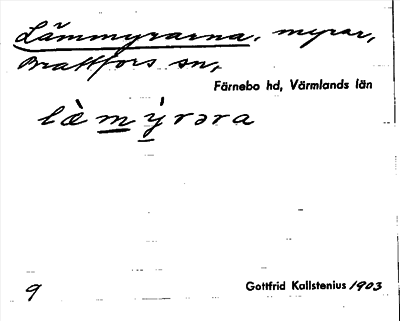 Lämmyrarna, myrar,
Brattfors sn,
Färnebo hd, Värmlands län
lὰmýrəra
9
Gottfrid Kallstenius 1903